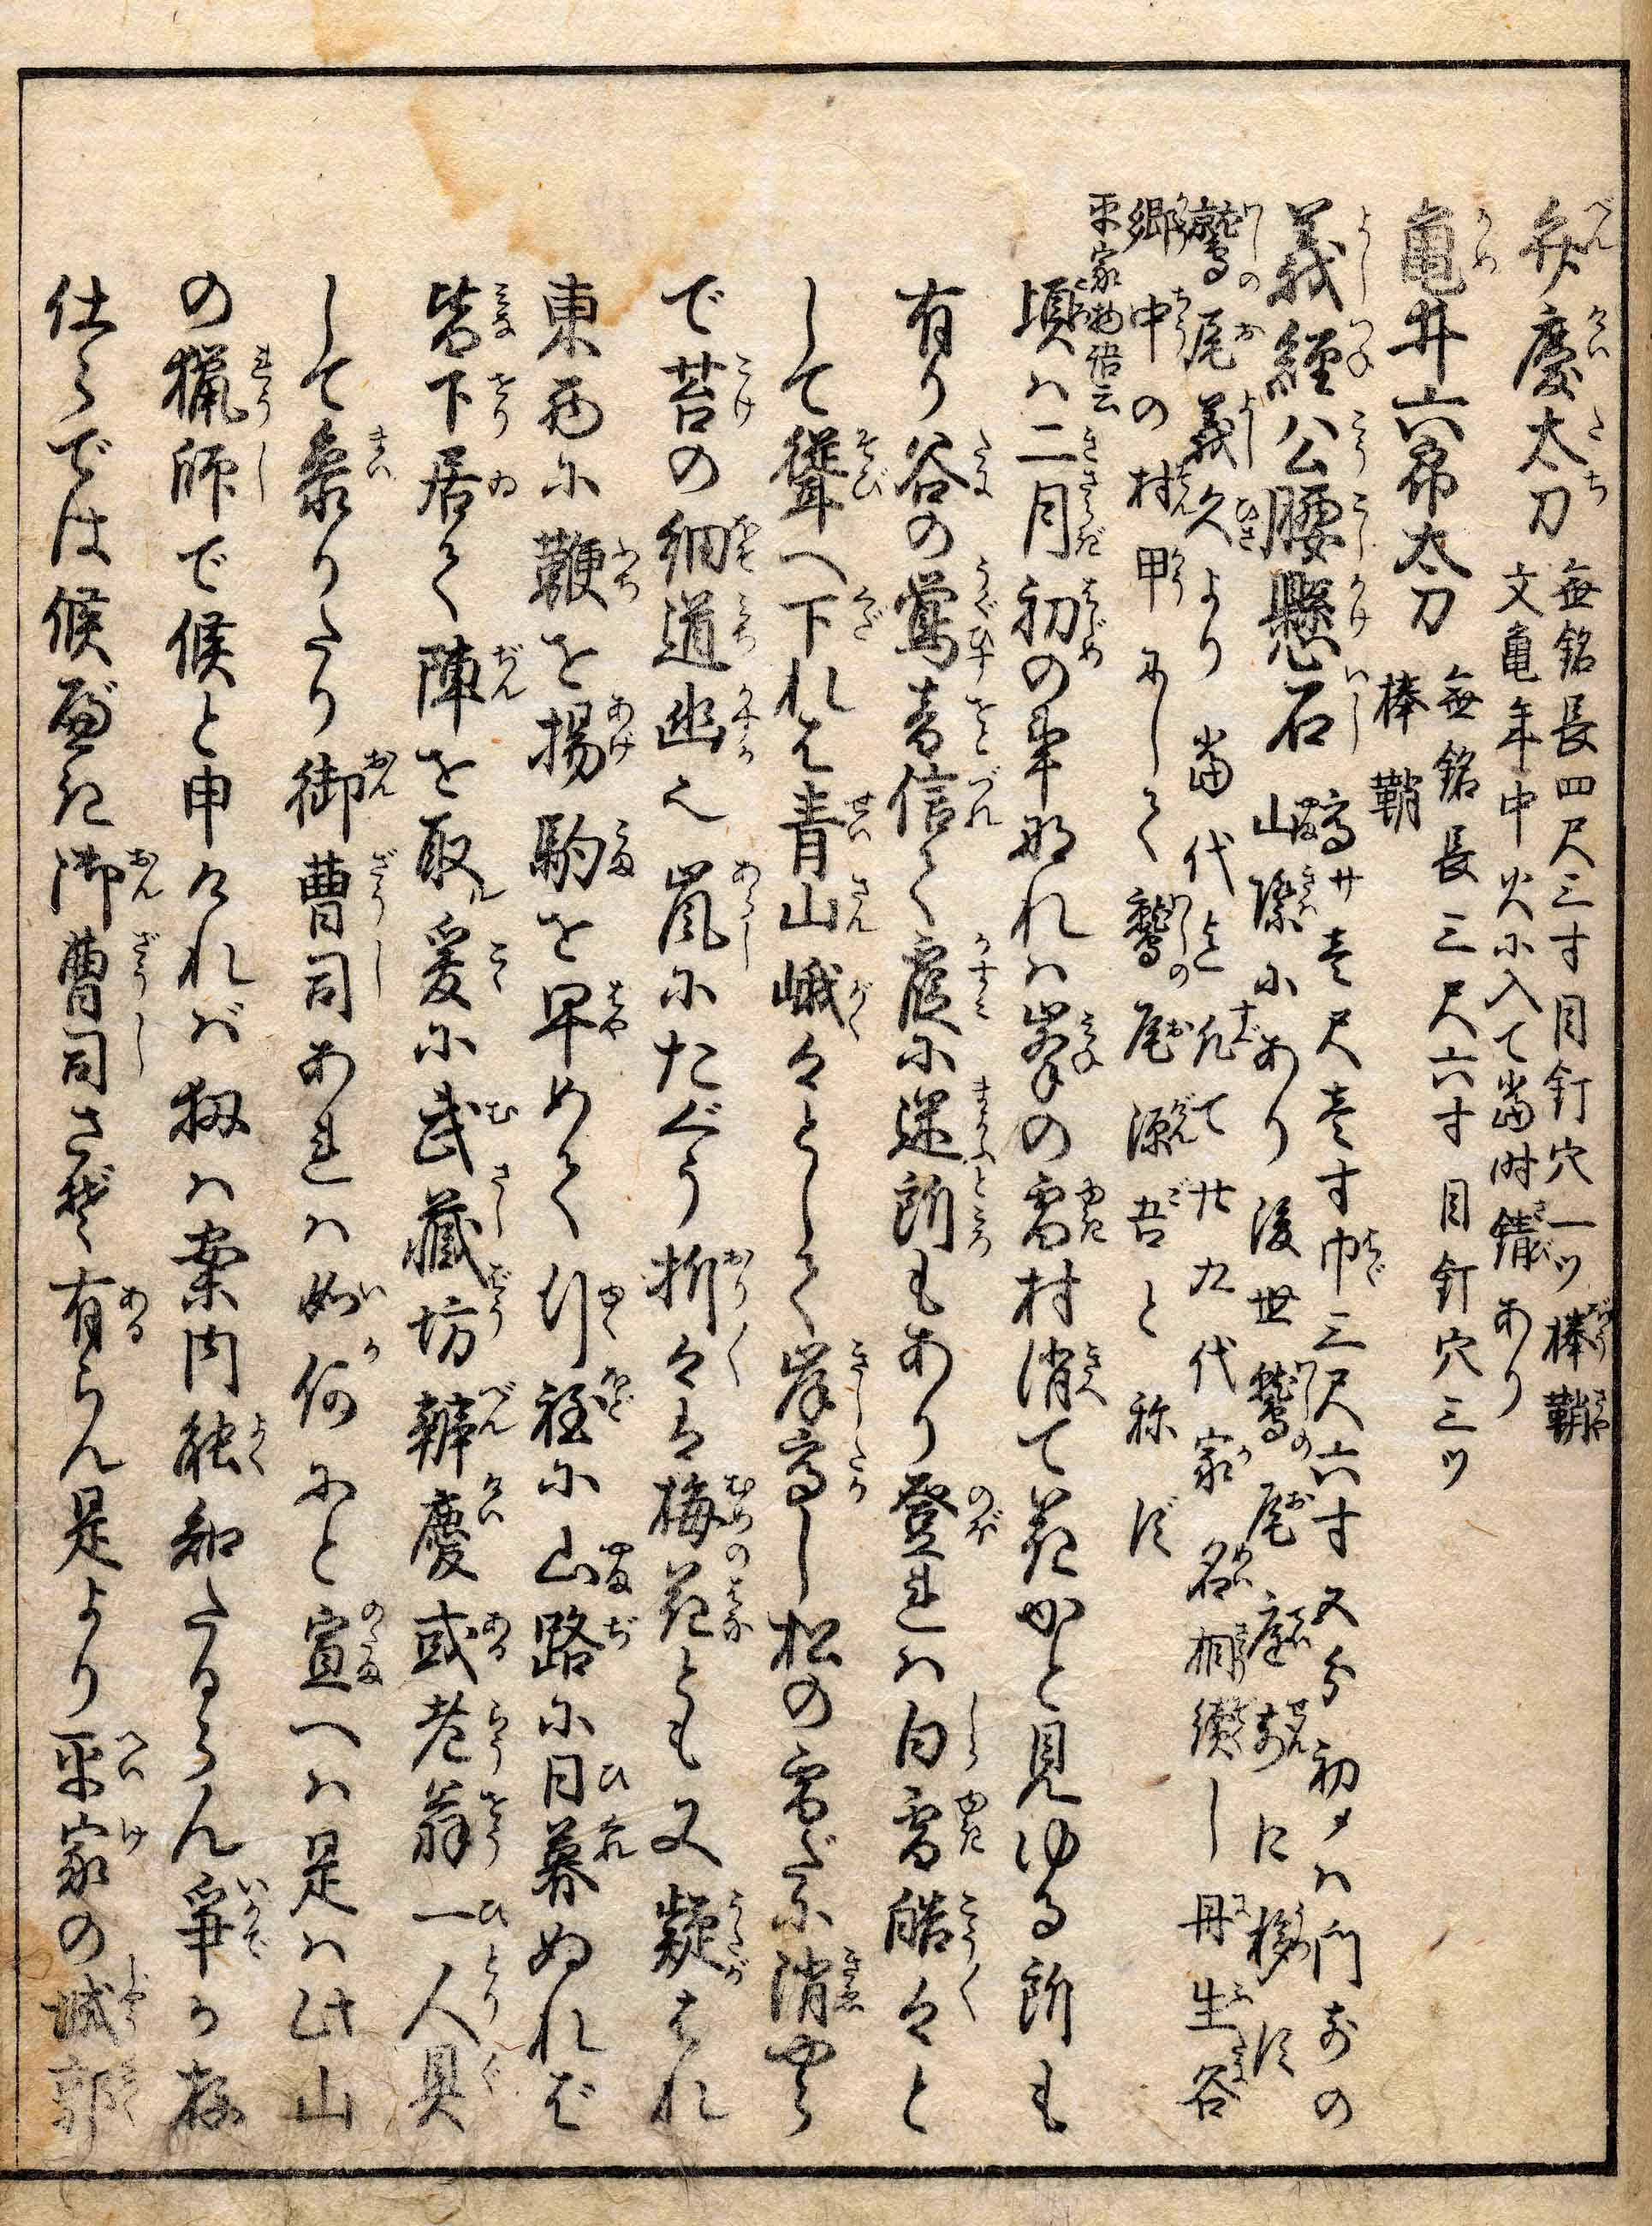 弁慶太刀 無銘長四尺三寸目釘穴一ツ棒鞘
文亀年中火に入て當時錆あり
亀井六郎太刀 無銘長三尺六寸目釘穴三ツ
棒鞘
義經公腰懸石 高サ壱尺壱寸巾三尺六寸 又分初メハ門前の
山際にあり後世鷲尾庭前に移す
鷲尾義久より當代迄凡て廿九代家名相續し丹生谷
郷中の村甲にして鷲尾源吾と称す
平家物語云
頃ハ二月初の事なれハ峯の雪村消て花かと見ゆる所も
有り谷の鶯音信て霞に迷所もあり登れハ白雪皓々と
して聳へ下れば青山峨々として岸高し松の雪だに消やら
で苔の細道幽也嵐にたぐう折々は梅花とも又疑はれ
東西に鞭を揚駒を早めて行程に山路に日暮ぬれば
皆下居て陣を取ル爰に武藏坊辨慶或老翁一人具
して参りたり御曹司あれハ如何にと宣へハ是ハ此山
の猟師で候と申けれバ扨ハ案内能知たるらん爭か存
仕らでは候べき御曹司さぞ有らん是より平家の城郭